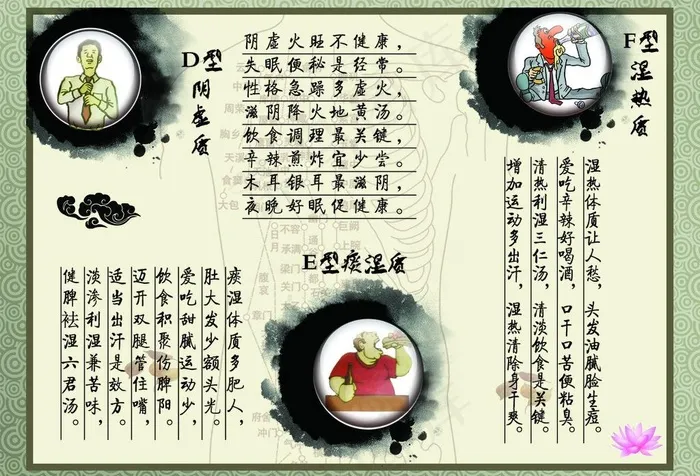 D型阴虚质
阴虚火旺不健康,
失眠便秘是经常。
性格急躁多虚火,
滋阴降火地黄汤。
饮食调理最关键,
辛辣煎炸宜少尝。
木耳银耳最滋阴,
夜晚好眠促健康。
F型湿热质
湿热体质让人愁,头发油腻脸生痘。
爱吃辛辣好喝酒,口干口苦便粘臭。
清热利湿三仁汤,清淡饮食是关键。
增加运动多出汗,湿热清除身干爽。
E型痰湿质
痰湿体质多肥人,
肚大发少额头光。
爱吃甜腻运动少,
饮食积聚伤脾阳。
迈开双腿管住嘴,
适当出汗是效方。
淡渗利湿兼苦味,
健脾祛湿六君汤。
周荣
胸乡
天溪
食窦
大包
日月
不容
承满
梁门
关门
巨阙
上脘
腹哀
章门
府舍
冲门